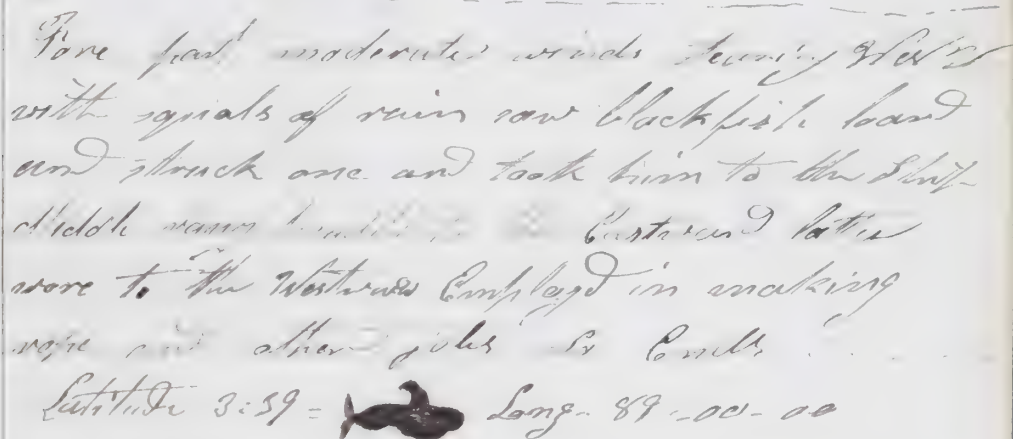 Fore part moderate winds West
with squals of rain saw blackfish loard
and struck one and took him to the Ship
Middle Eastward latter
wore to the Westward Employd in making
rope and other jobs So Ends
Latitude 3:39 = Long- 89-00-00